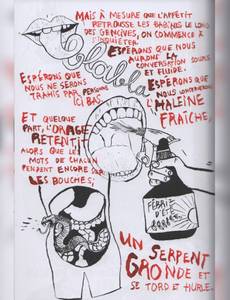 MAIS À MESURE QUE L'APPÉTIT
RETROUSSE LES BABINES LE LONG
DES GENCIVES, ON COMMENCE À
S'INQUIÉTER
blabla
ESPÉRONS QUE NOUS
AURONS LA
CONVERSATION SOUPLE
ET FLUIDE.
ESPÉRONS QUE
NOUS NE SERONS
TRAHIS PAR PERSONNE
ICI BAS
ESPÉRONS QUE
NOUS
L'HALEINE
FRAÎCHE,
ET QUELQUE
PART, L'ORAGE
RETENTIT
ALORS QUE LES
MOTS DE CHACUN
PENDENT ENCORE SUR
LES BOUCHES;
UN SERPENT
GRONDE ET
SE TORD ET HURLE.